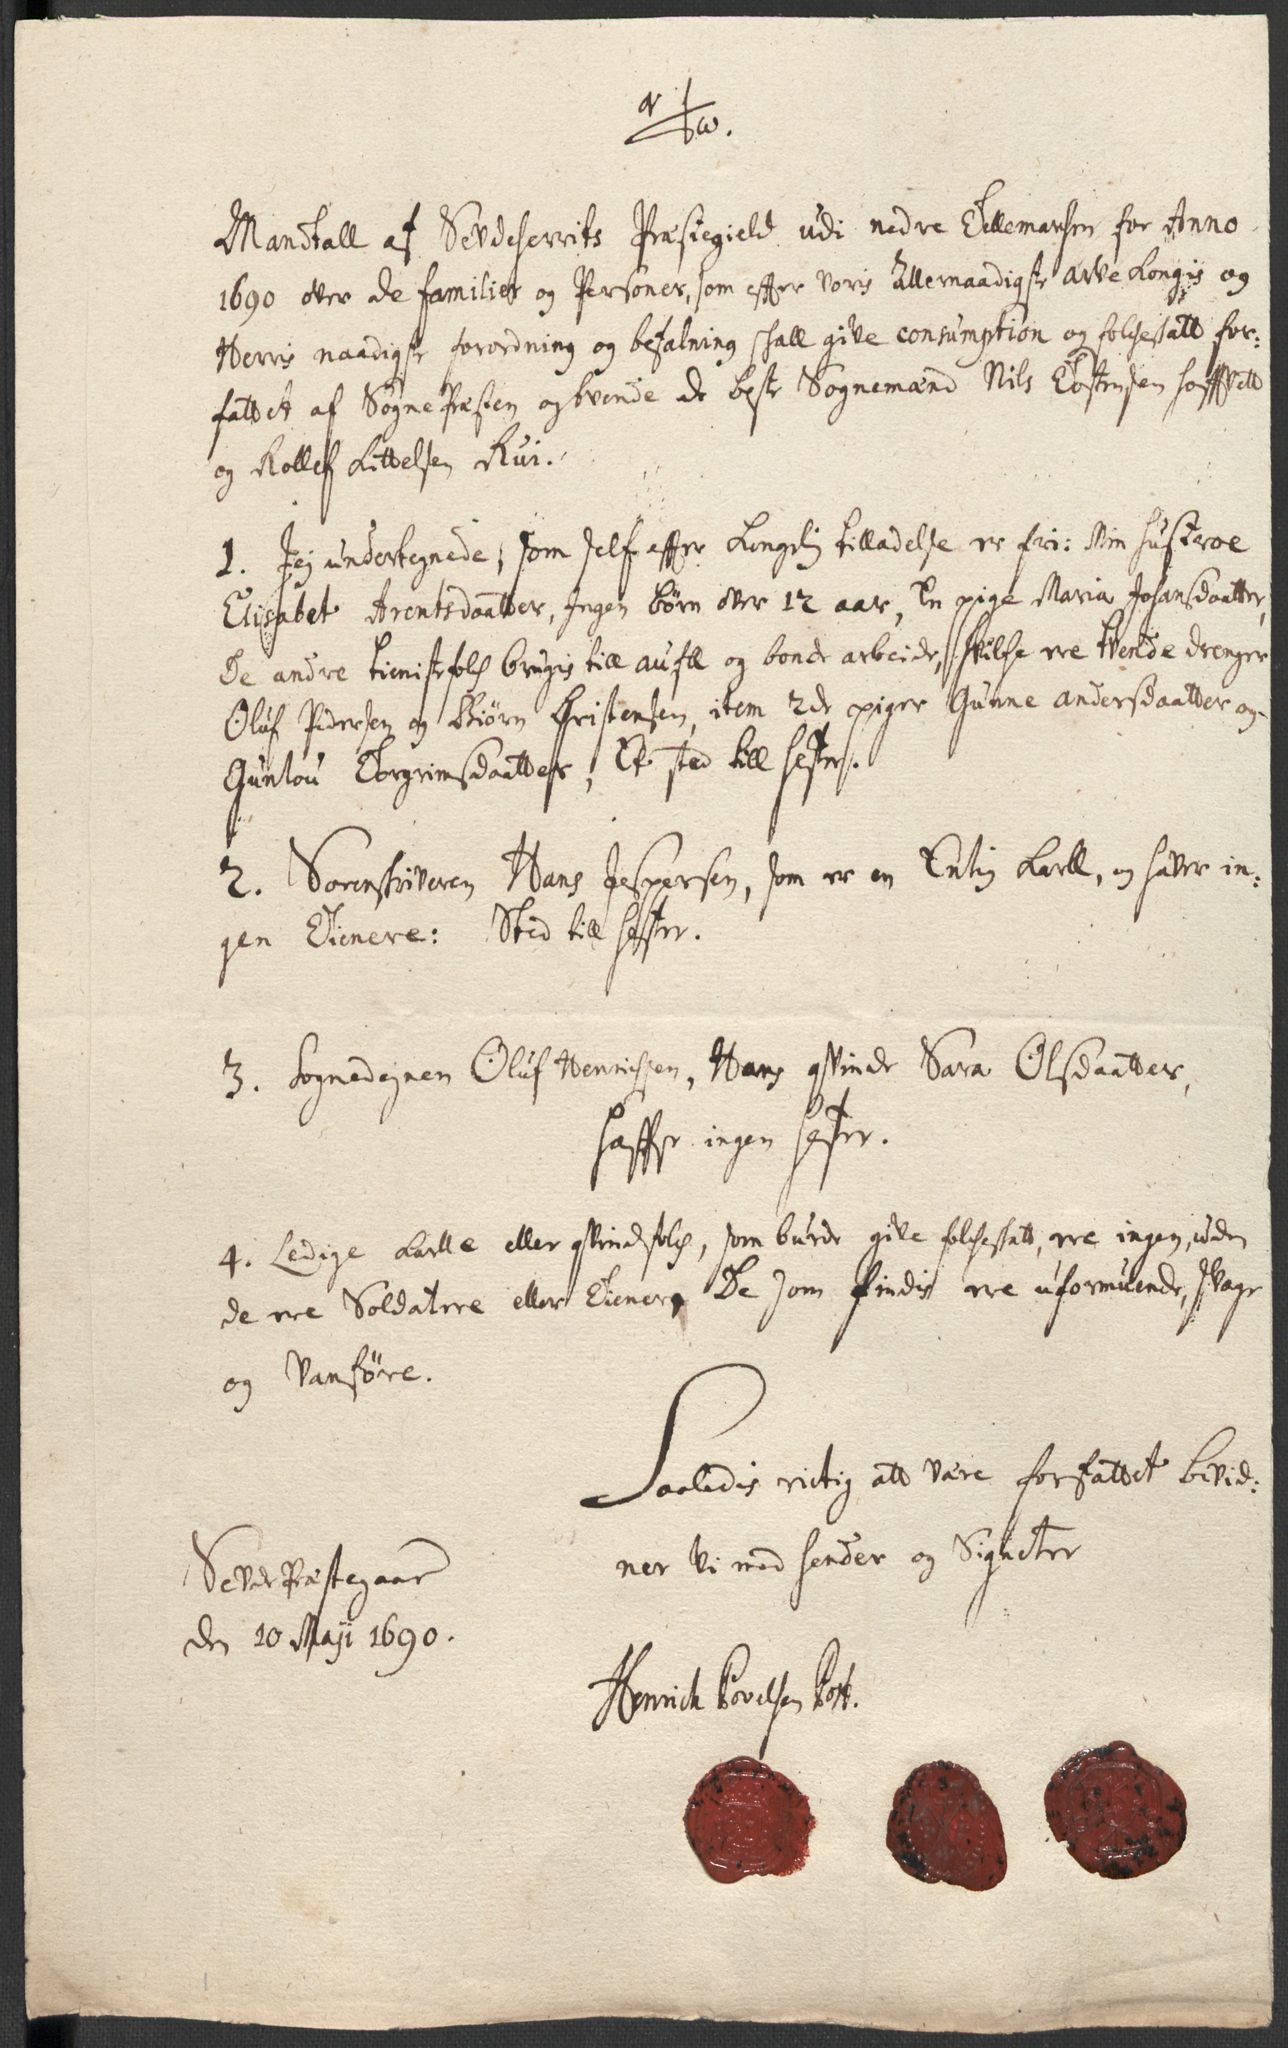 α ω.
Mandtall af Sevdeherrits Præstegield udi nedre Tellemarken for Anno
1690 över de familier og Personer, som effter voris Allernaadigste arve Kongis og
Herris naadigste forordning og befalning skall give consumption og folcheskatt for:
fattet af Sognepræsten og tvende de beste Sognemænd Nils Tostensen
og Rollef Kittelsen Rui.
1. Jeg undertegnede, som self effter Kongelig tilladelse er fri: Min Husteroe
Elisabet Arentsdaatter, Ingen börn över 12 aar, En pige Maria Johansdaatter,
De andre tienistefolch brugis till aufll og bonde arbeide, hvilche ere tvende drenger
Oluf Pedersen og Biörn Christensen, item 2de piger Gunne andersdaatter og
Gunlou Torgrimsdaatter, Et sted till hester.
2. Sorenskriveren Hans Jespersen, som er en Enlig Karll, og haver in:
gen Tienere: Sted till hester.
3. Sognedegnen Oluf Henrichsen, Hans qvinde Sara Olsdaatter,
haffer ingen hester.
4. Ledige Karlle eller qvindfolch, som burde give folcheskatt, ere ingen, uden
de ere Soldatere eller Tiener, De som findis ere uformuende, svage
og vanföre.
Saaledis rictig att være forfattet bevid:
ner vi med hender og Signeter
Sevde Præstegaard
den 10 Maji 1690.
Henrich Povelsen Bott.